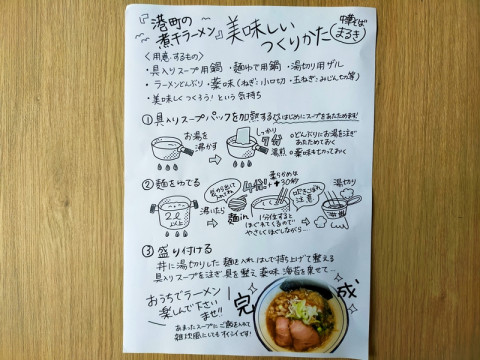 『港町の煮干ラーメン』美味しいつくりかた
中華そば
まるき
〈用意するもの〉
・具入りスープ用鍋 ・麺ゆで用鍋 ・湯切り用ザル
・ラーメンどんぶり ・薬味(ねぎ:小口切・玉ねぎ:みじん切等)
・美味しくつくろう!という気持ち
①具入りスープパックを加熱する
はじめにスープをあたためます!
お湯を
沸かす
しっかり
7分
湯煎
○どんぶりにお湯を注ぎ
あたためておく
○薬味もきっておく
②麺をゆでる
2ℓ
以上
沸いたら
袋から出して
麺in
4分!
柔らかめなら
+30秒
1分位すると
ほぐれてくるので
やさしくほぐしながら…
吹きこぼれ
注意
湯切り
③盛り付ける
丼に湯切りした麺を入れはしで持ち上げて整える
具入りスープを注ぎ具を整え薬味 海苔を乗せて…
おうちでラーメン
楽しんで下さい
ませ!!
あまったスープにご飯を入れて
雑炊風にしてもオイシイです!
完成